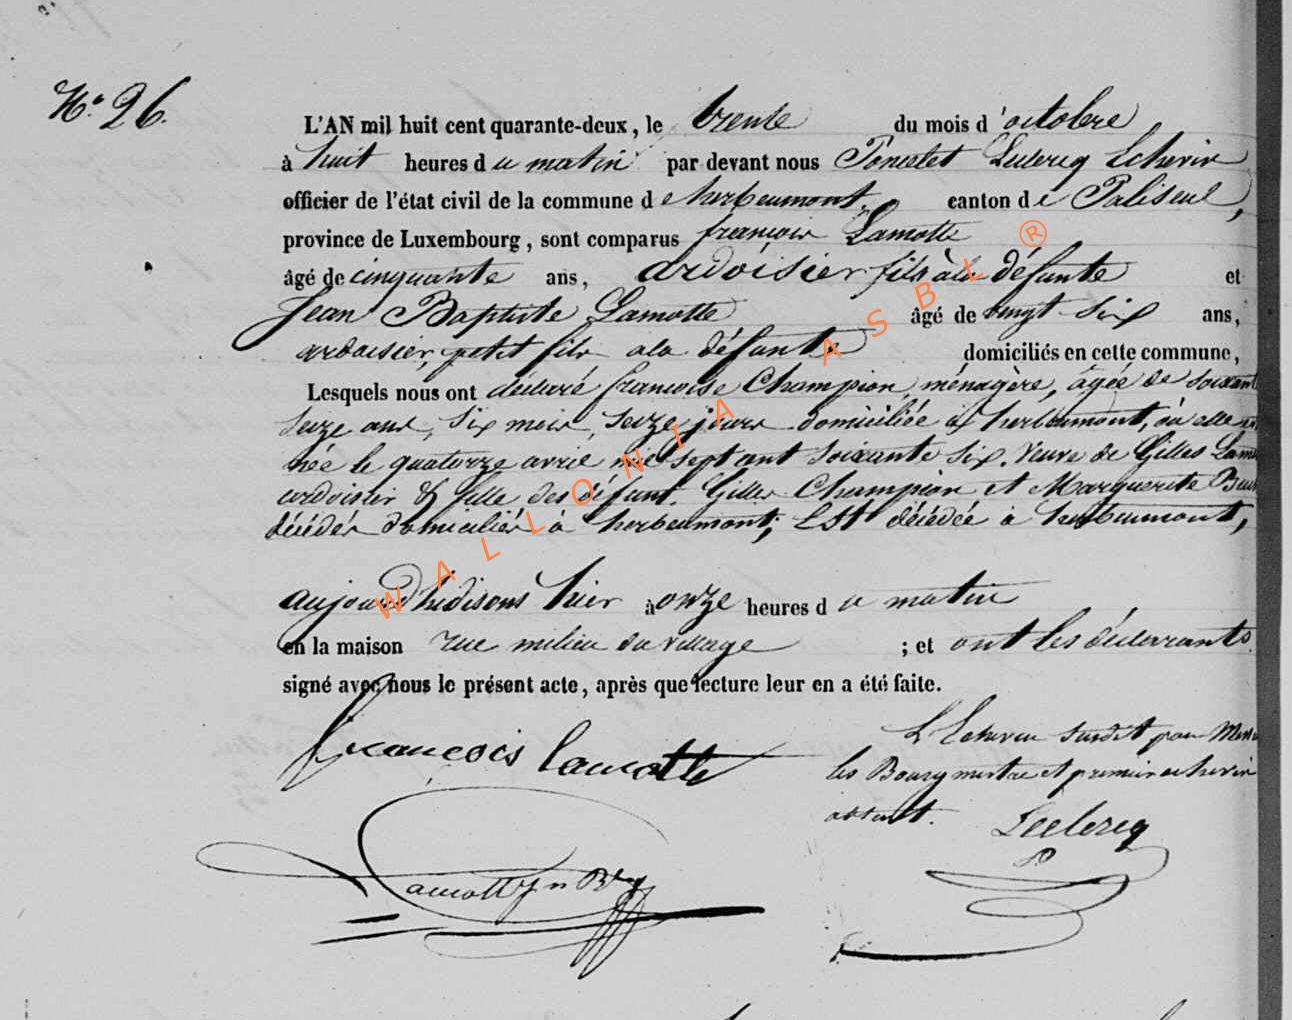 N.° 26.
L'AN mil huit cent quarante-deux, le trente du mois d'octobre
à huit heures du matin par devant nous Poncelet Leclercq Echevin
officier de l'état civil de la commune de herbeumont, canton de Paliseul,
province de Luxembourg, sont comparus françois Lamotte
âgé de cinquante ans, ardoisier fils à la défunte et
Jean Baptiste Lamotte âgé de vingt six ans,
ardoisier, petit fils a la défunte domiciliés en cette commune,
Lesquels nous ont déclaré francoise Champion, ménagère, âgée de soixant
seize ans, six mois, seize jours domiciliée à herbeumont, où elle
née le quatorze avril mil sept cent soixante six. Veuve de Gilles Lam
ardoisier & fille des défunt. Gilles Champion et Marguerite
décédés domiciliés à herbeumont; Est décédée à herbeumont,
aujourd'hui disons hier à onze heures du matin
en la maison rue milieu du village ; et ont les déclarants
signé avec nous le présent acte, après que lecture leur en a été faite.
françois lamotte
L'Echevin susdit pour
les Bourgmestre et premier echevin
absent. Leclercq
Lamotte Jn Bte
WALLONIA ASBL ®